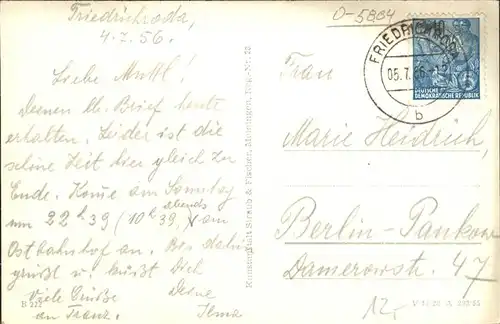 Friedrichroda,
4.7.56.
Liebe Mutti!
Deinen lb. Brief heute
erhalten. Leider ist die
schöne Zeit hier gleich zu
Ende. Komme am Samstag
um 22 h 39 (10 h 39 abends) am
Ostbahnhof an. Bis dahin
grüßt u. küßt Dich
Viele Grüße Deine
an Franz.
B 222
Kunstanstalt Straub & Fischer, Meiningen
O-5804
FRIEDRICHRODA
05.7.56
b
DEUTSCHE
DEMOKRATISCHE REPUBLIK
Frau
Marie Heidrich,
Berlin-Pankow
Damerowstr. 47
12,-